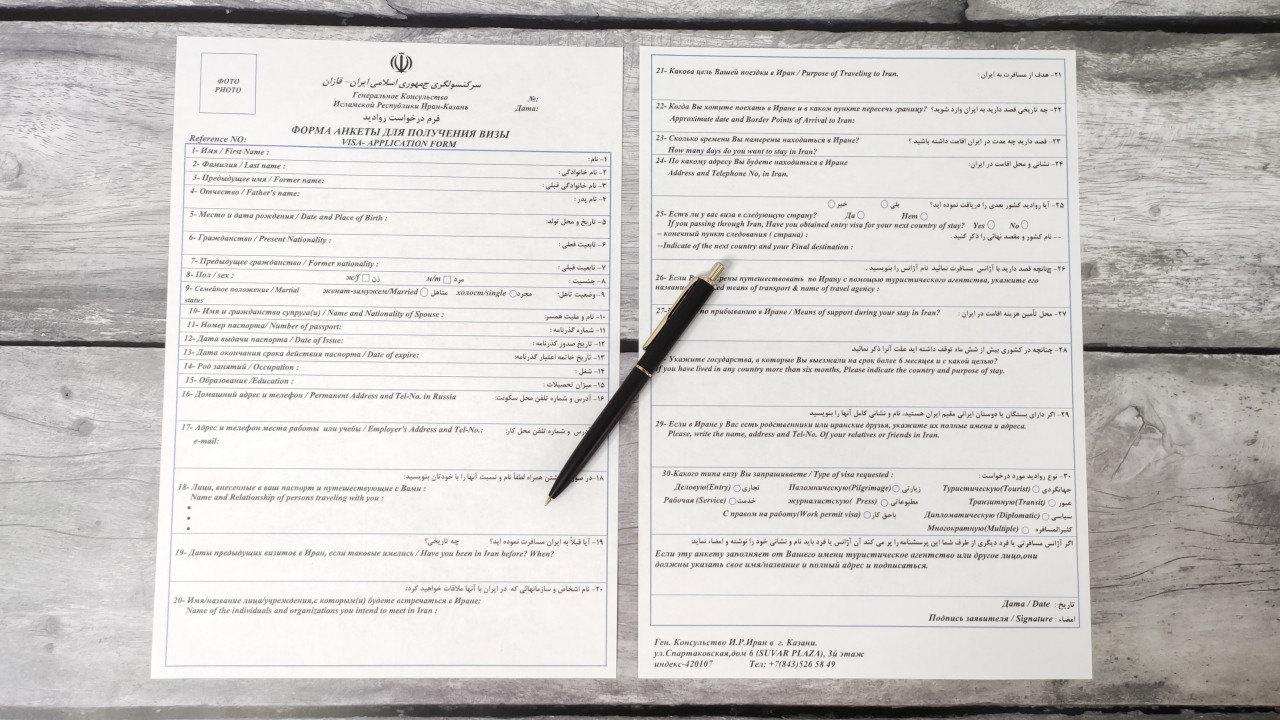 ФОТО
PHOTO
سرکنسولگری جمهوری اسلامی ایران- قازان
Генеральное Консульство
Исламской Республики Иран-Казань
№:
Дата:
فرم درخواست روادید
ФОРМА АНКЕТЫ ДЛЯ ПОЛУЧЕНИЯ ВИЗЫ
Reference NO:
VISA- APPLICATION FORM
1- Имя / First Name : ۱- نام :
2- Фамилия / Last name : ۲- نام خانوادگی :
3- Предыдущее имя / Former name: ۳- نام خانوادگی قبلی :
4- Отчество / Father's name: ۴- نام پدر :
5- Место и дата рождения / Date and Place of Birth : ۵- تاریخ و محل تولد:
6- Гражданство / Present Nationality : ۶- تابعیت فعلی :
7- Предыдущее гражданство / Former nationality : ۷- تابعیت قبلی :
8- Пол / sex : ж/f زن м/m مرد ۸- جنسیت :
9- Семейное положение / Martial status женат-замужем/Married متاهل холост/single مجرد ۹- وضعیت تاهل:
10- Имя и гражданство супруга(и) / Name and Nationality of Spouse : ۱۰- نام و ملیت همسر:
11- Номер паспорта/ Number of passport: ۱۱- شماره گذرنامه :
12- Дата выдачи паспорта / Date of Issue: ۱۲- تاریخ صدور گذرنامه :
13- Дата окончания срока действия паспорта / Date of expire: ۱۳- تاریخ خاتمه اعتبار گذرنامه:
14- Род занятий / Occupation : ۱۴- شغل :
15- Образование /Education : ۱۵- میزان تحصیلات :
16- Домашний адрес и телефон / Permanent Address and Tel-No. in Russia ۱۶- آدرس و شماره تلفن محل سکونت:
17- Адрес и телефон места работы или учебы / Employer's Address and Tel-No.: و شماره تلفن محل کار:
e-mail:
۱۸-در همراه لطفاً نام و نسبت آنها را با خودتان بنویسید:
18- Лица, внесенные в ваш паспорт и путешествующие с Вами :
Name and Relationship of persons traveling with you :
•
•
•
۱۹- آیا قبلاً به ایران مسافرت نموده اید؟ چه تاریخی؟
19- Даты предыдущих визитов в Иран, если таковые имелись / Have you been in Iran before? When?
۲۰- نام اشخاص و سازمانهائی که در ایران با آنها ملاقات خواهید کرد:
20- Имя/название лица/учреждения,с которым(и) будете встречаться в Иране:
Name of the individuals and organizations you intend to meet in Iran :
21- Какова цель Вашей поездки в Иран / Purpose of Traveling to Iran. ۲۱- هدف از مسافرت به ایران :
22- Когда Вы хотите поехать в Иране и в каком пункте пересечь границу? ۲۲- چه تاریخی قصد دارید به ایران وارد شوید؟
Approximate date and Border Points of Arrival to Iran:
23- Сколько времени Вы намерены находиться в Иране? ۲۳- قصد دارید چه مدت در ایران اقامت داشته باشید ؟
How many days do you want to stay in Iran?
24- По какому адресу Вы будете находиться в Иране ۲۴- نشانی و محل اقامت در ایران:
Address and Telephone No, in Iran.
۲۵- آیا روادید کشور بعدی را دریافت نموده اید؟ بلی خیر
25- Есть ли у вас виза в следующую страну? Да Нет
If you passing through Iran, Have you obtained entry visa for your next country of stay? Yes No
– конечный пункт следования ( страна) : –– نام کشور و مقصد نهائی را ذکر کنید .
–Indicate of the next country and your Final destination :
۲۶- چنانچه قصد دارید با آژانس مسافرت نمائید نام آژانس را بنویسید .
26- Если путешествовать по Ирану с помощью туристического агентства, укажите его
means of transport & name of travel agency :
27- по прибыванию в Иране / Means of support during your stay in Iran? ۲۷- محل تأمین هزینه اقامت در ایران :
۲۸- چنانچه در کشوری بیش از شش ماه توقف داشته اید علت آنرا ذکر نمائید
Укажите государства, в которые Вы выезжали на срок более 6 месяцев и с какой целью?
If you have lived in any country more than six months, Please indicate the country and purpose of stay.
۲۹- اگر دارای بستگان یا دوستان ایرانی مقیم ایران هستید، نام و نشانی کامل آنها را بنویسید
29- Если в Иране у Вас есть родственники или иранские друзья, укажите их полные имена и адреса.
Please, write the name, address and Tel-No. Of your relatives or friends in Iran.
30-Какого типа визу Вы запрашиваете / Type of visa requested : ۳۰- نوع روادید مورد درخواست :
Деловую(Entry) تجاری Паломническую(Pilgrimage) زیارتی Туристическую(Tourist) جهانگردی
Рабочая (Service) خدمت журналистскую( Press) مطبوعاتی Транзитную(Transit) عبور
С правом на работу(Work permit visa) باحق کار Дипломатическую (Diplomatic) سیاسی
Многократную(Multiple) کثیرالمسافره
اگر آژانس مسافرتی یا فرد دیگری از طرف شما این پرسشنامه را پر می کند آن آژانس یا فرد باید نام و نشانی خود را نوشته و امضاء نماید
Если эту анкету заполняет от Вашего имени туристическое агентство или другое лицо,они
должны указать свое имя/название и полный адрес и подписаться.
Дата / Date تاریخ :
Подпись заявителя / Signature امضاء :
Ген. Консульство И.Р.Иран в г. Казани.
ул.Спартаковская,дом 6 (SUVAR PLAZA), 3й этаж
индекс-420107 Тел: +7(843)526 58 49